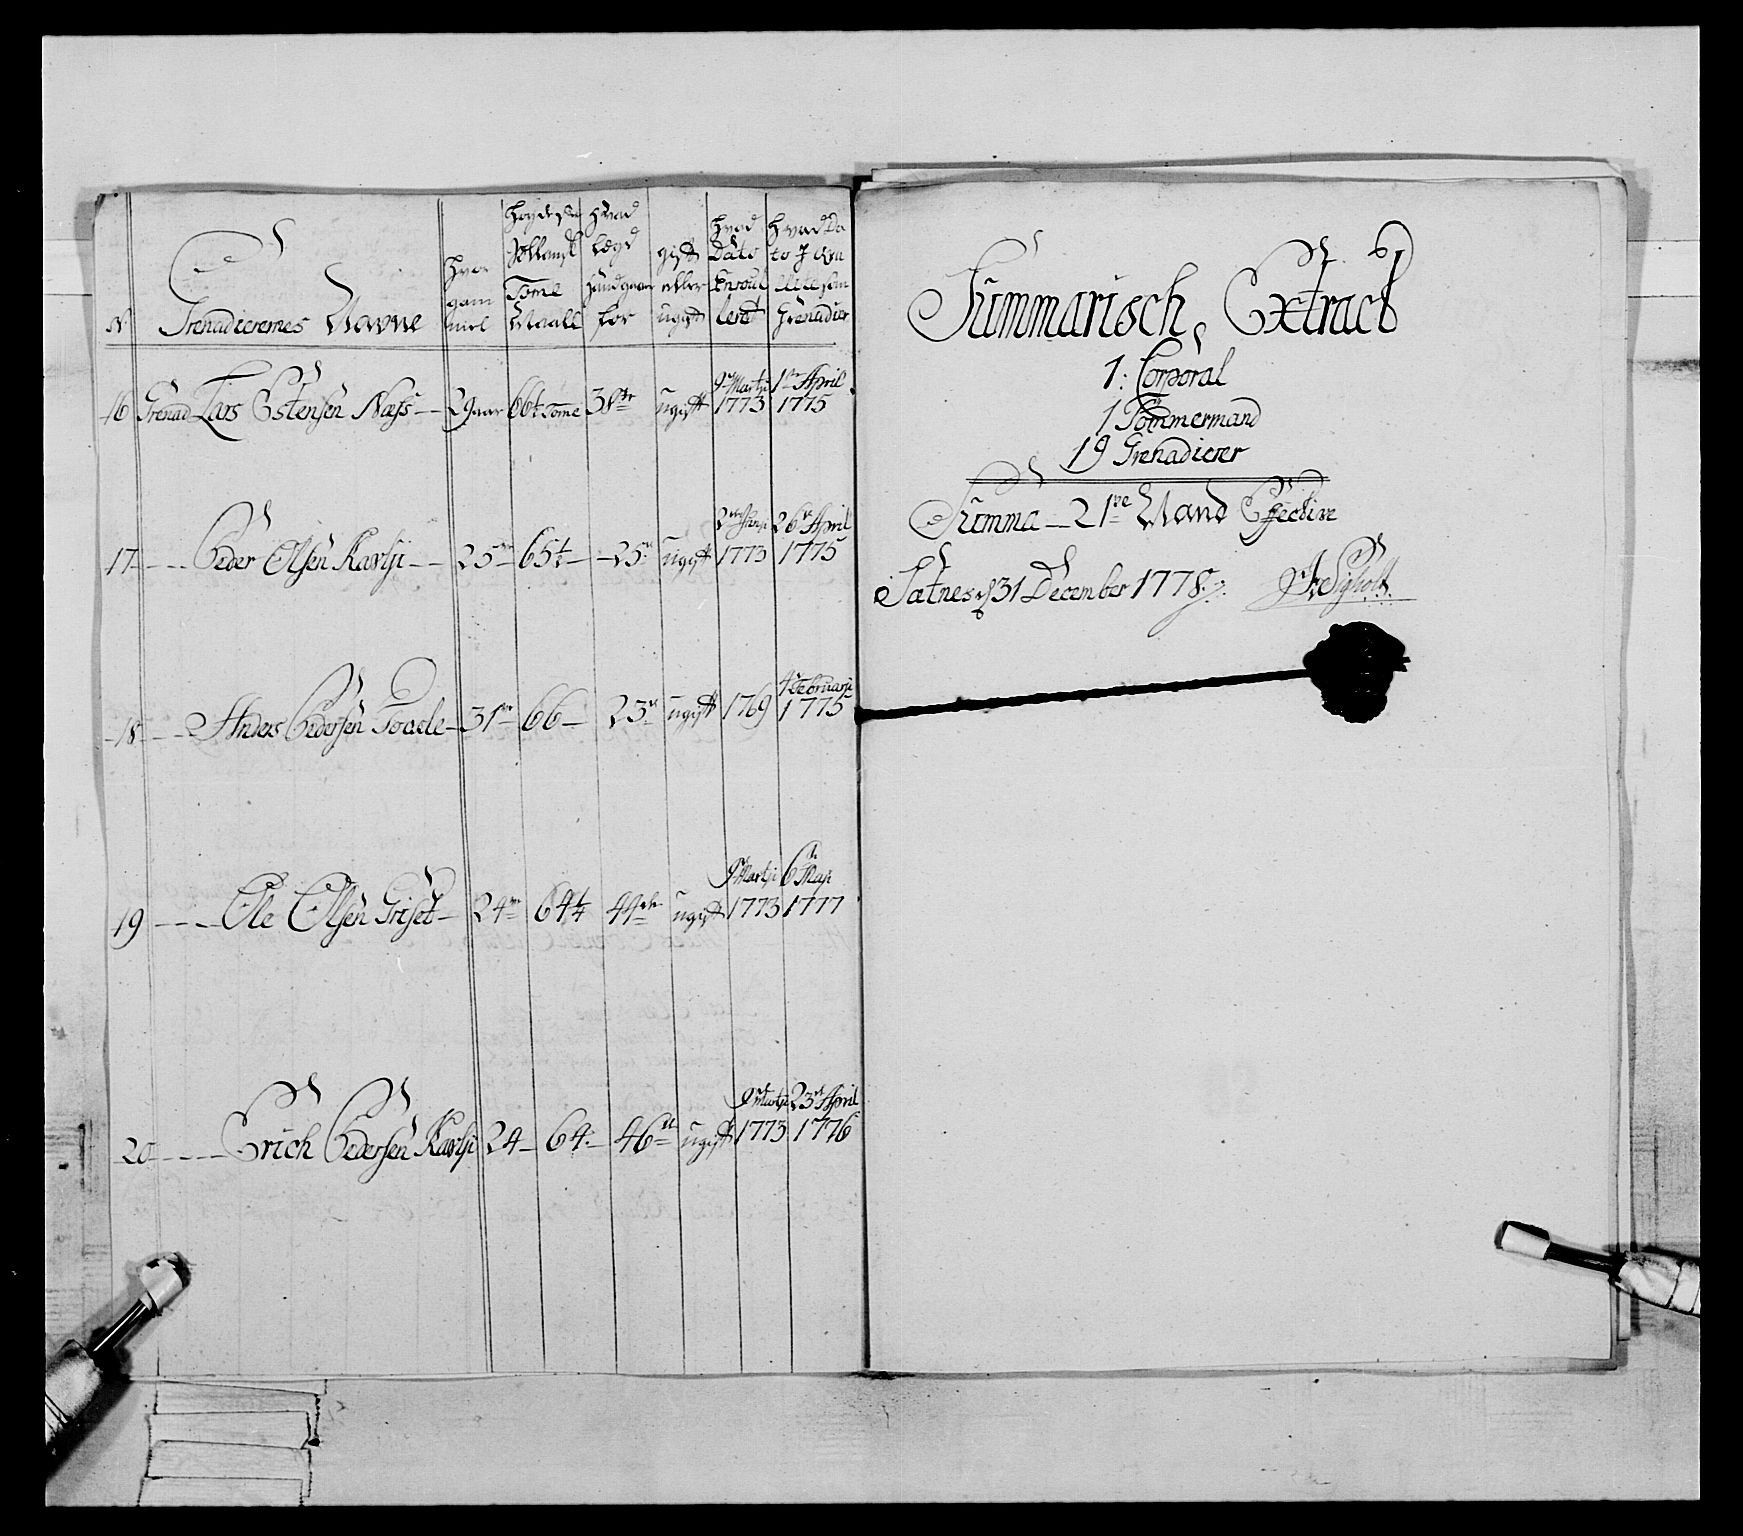 N.
Grenadierernes Navne
hvor
gam
mel
Tome
Maall
hvad
Legd
handgaar
for
gift
eller
ugift
hvad
Dato
Enroul
leret
hvad Da
to
som
Grenadier
16 Grenad Lars Estensen Næss 29 aar 66¼ Tome 38te ugift 9 Martzi 1773 1te April 1775
17 Peder Olsen 25 65½ 25 ugift 1773 26de April 1775
18 Anders Pedersen 31 66 23 ugift 1769 4 Februarii 1775
19 Ole Olsen Griset 24 64¼ 44de ugift 9 Martzi 1773 6te Maji 1777
20 Erich Pedersen 24 64 46de ugift 9 Martzi 1773 23de April 1776
Summarisch Extract
1: Corporal
1 Tömmermand
19 Grenadierer
Summa 21ve Mand Effective
Sætnes d 31 December 1778